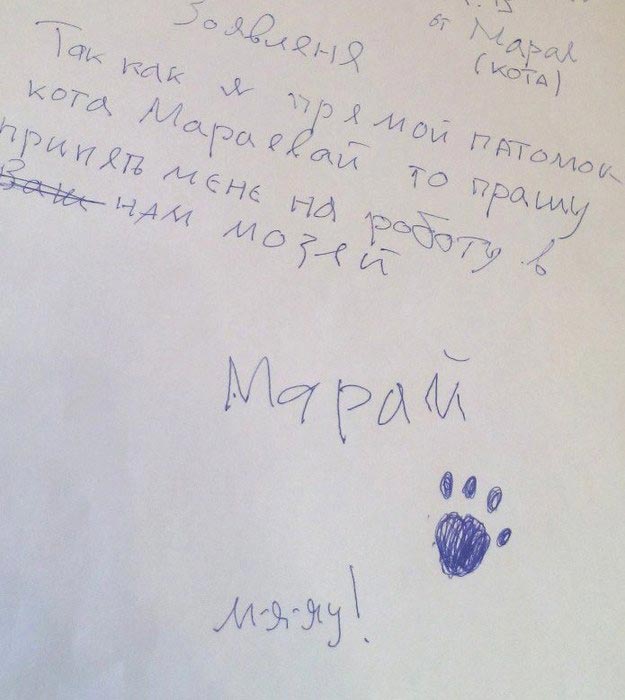 от Марая
(КОТА)
Зоявленя
Так как я прямой патомок
кота Мараевай то прашу
принять мене на роботу в
Ваш нам мозей
Марай
м-я-яу!